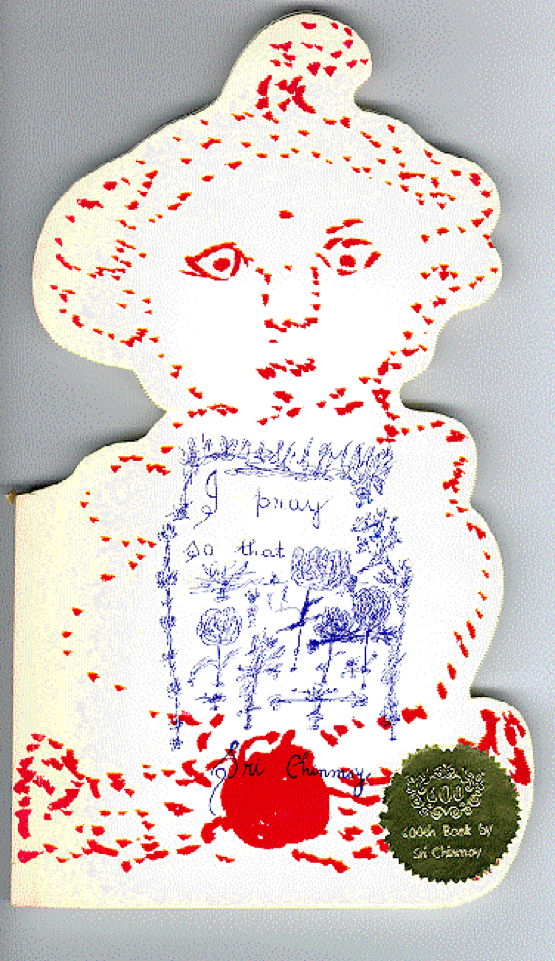 I pray
so that
Sri Chinmoy
600
600th Book by
Sri Chinmoy